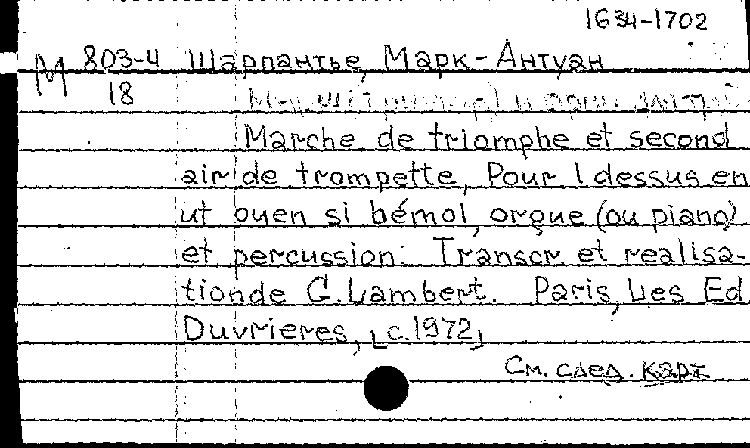 1634-1702
М 803-4 Шарпантье, Марк-Антуан
18
Marche de triomphe et second
air de trompette, Pour 1 dessus en
ut ouen si bémol, orgue (ou piano)
et percussion. Transcr et realisa-
tionde G. Lambert. Paris, Les Ed
Duvrieres, [c.1972]
См. след. карт